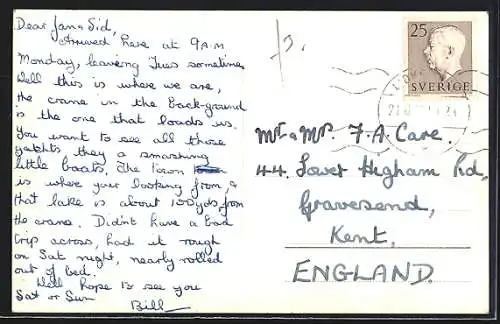 Dear Jan & Sid,
Arrived here at 9 A.M
Monday, leaving Tues sometime,
Well this is where we are,
the crane in the back-ground
is the one that loads us.
You want to see all those
yatchts they a smashing
little boats. The
is where your looking from, &
that lake is about 150yds from
the crane. Didn't have a bad
trip across, had it rough
on Sat night, nearly rolled
out of bed.
Well hope to see you
Sat or Sun
Bill
25
SVERIGE
Mr & Mrs F. A. Care.
44. Lower Higham Rd,
Gravesend,
Kent,
ENGLAND.